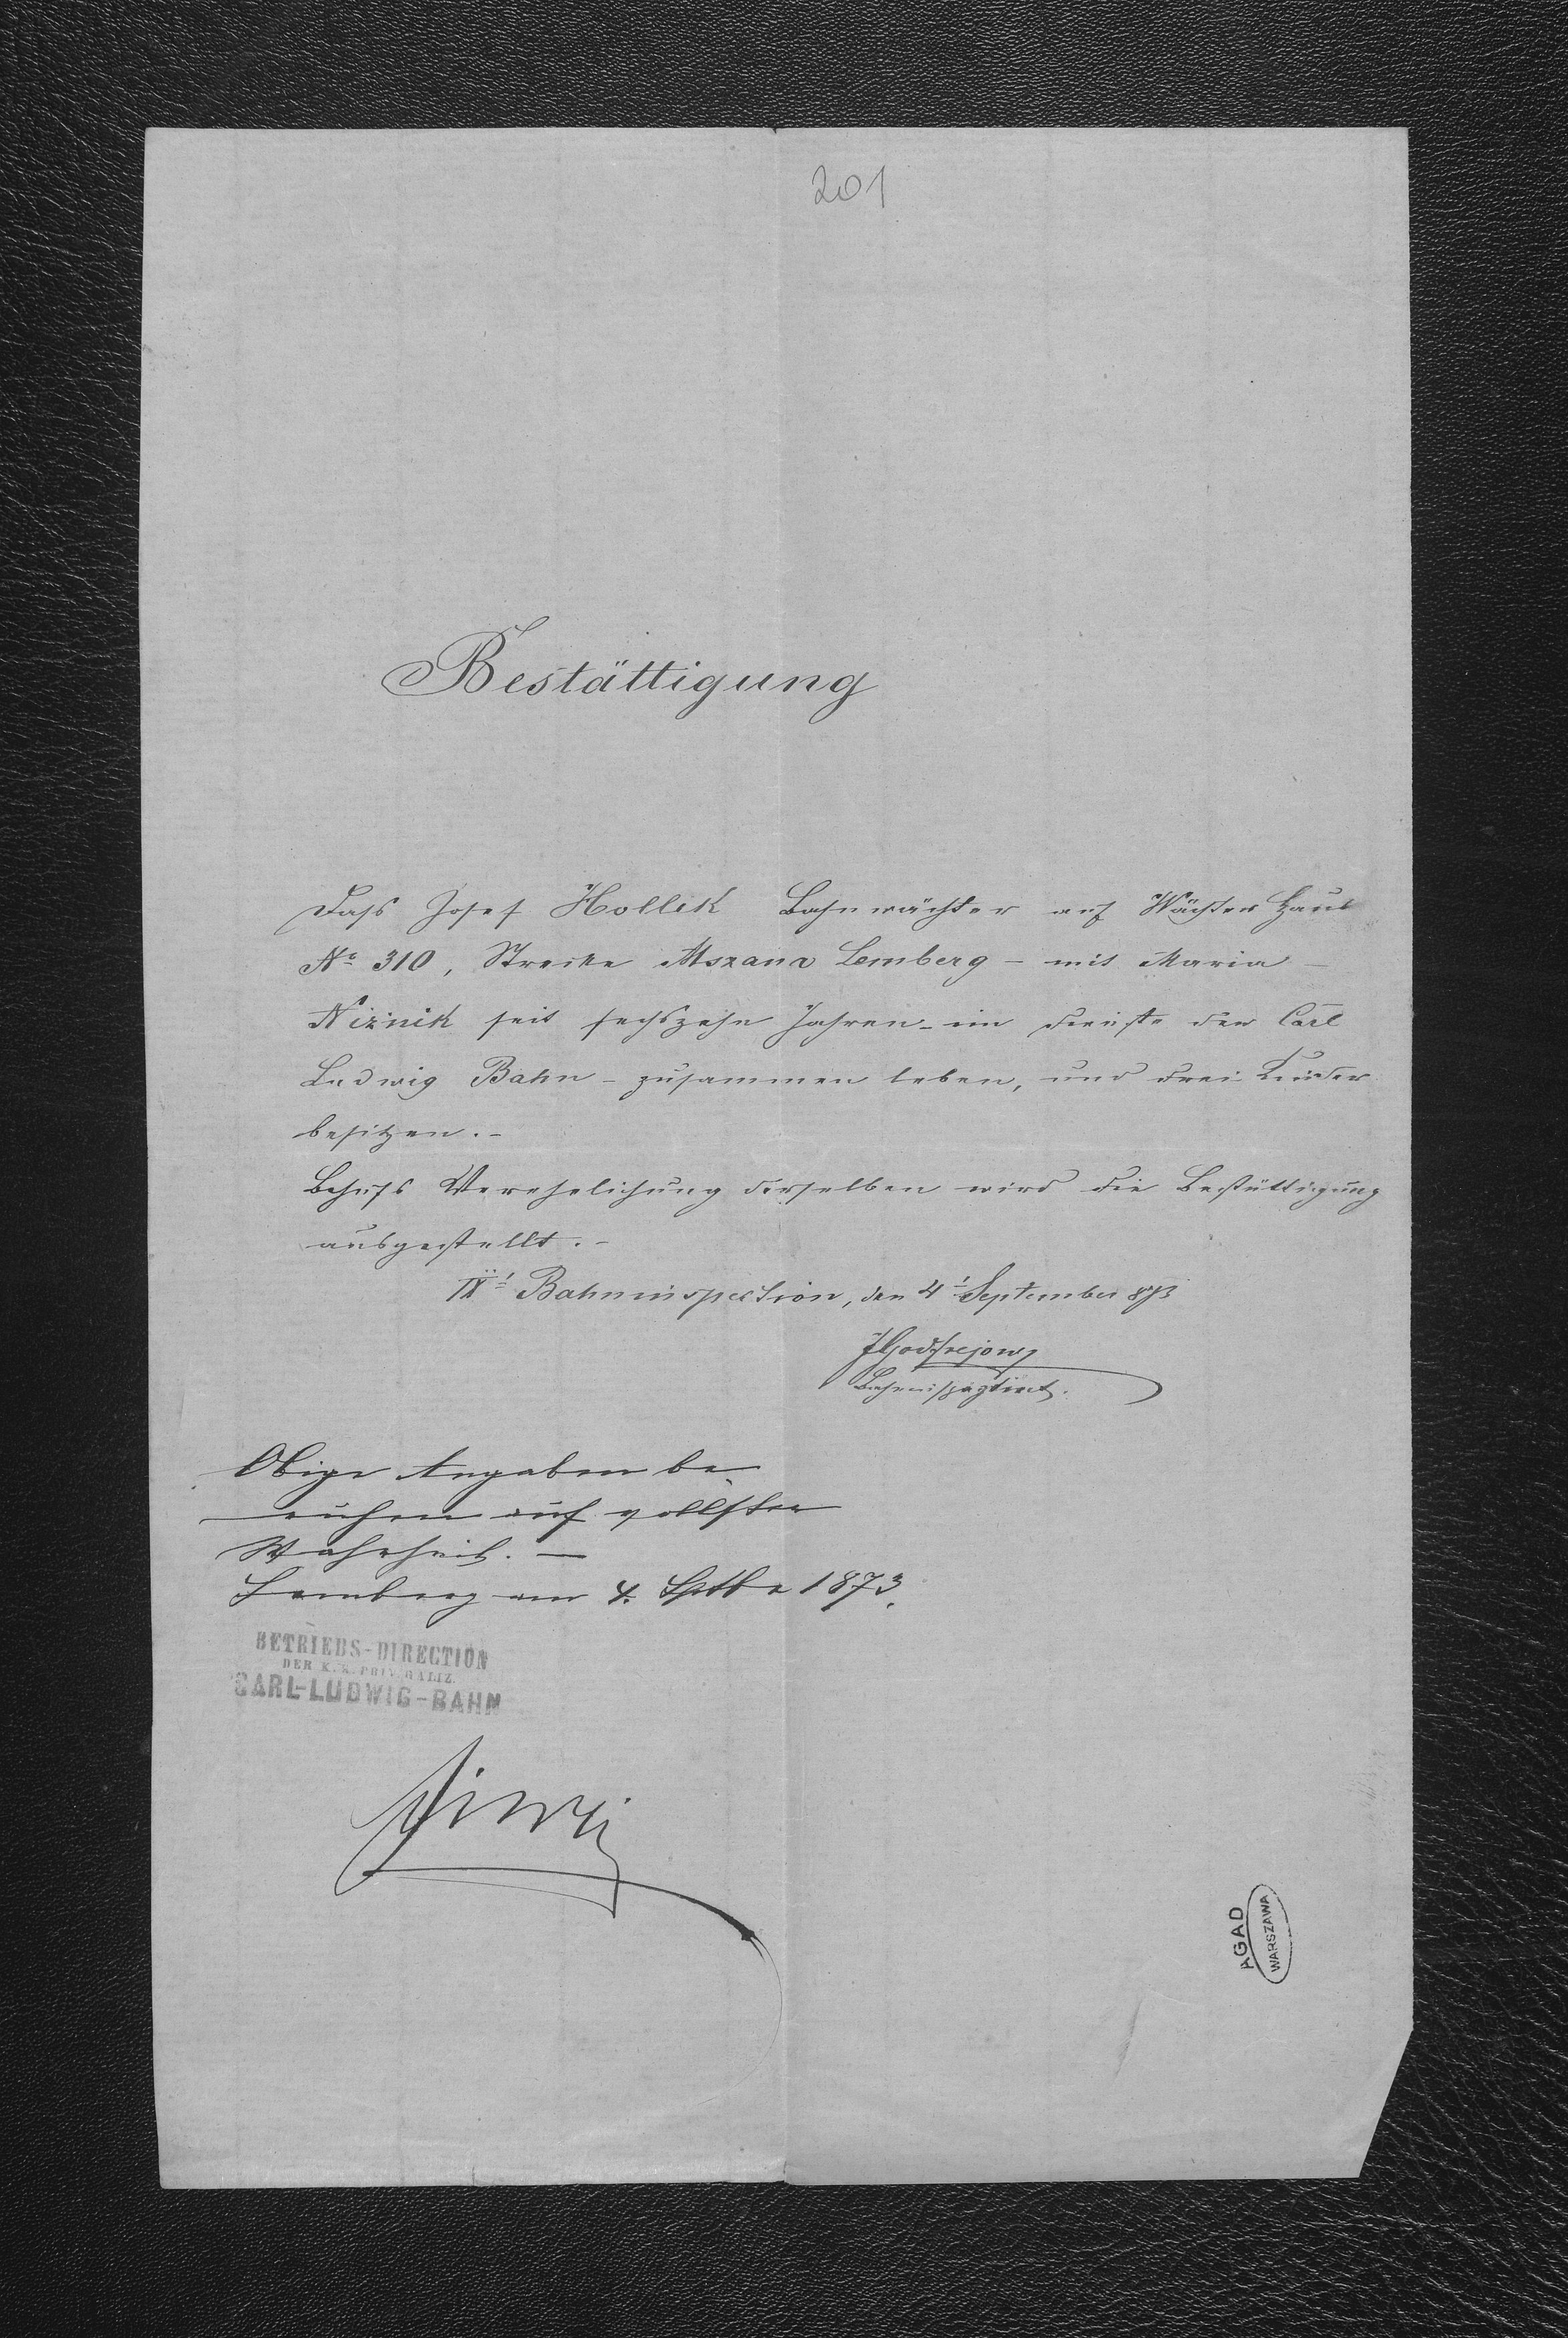 201
Bestättigung
Dass Josef Hollik Bahnwächter auf Wächter Haus
No 310, Strecke Mszana Lemberg – mit Maria –
Niżnik seit sechszehn Jahren – im Dienste der Carl
Ludwig Bahn – zusammen leben, und drei Kinder
besitzen. –
Behufs Verehelichung derselben wird die Bestättigung
ausgestellt. –
IX Bahninspection, den 4 September 873
Bahninspizient.
Obige Angaben be
ruhen auf vollster
Wahrheit. –
Lemberg am 4. Septbr 1873.
BETRIEBS-DIRECTION
DER K. K. PRIV. GALIZ.
CARL-LUDWIG-BAHN
AGAD
WARSZAWA